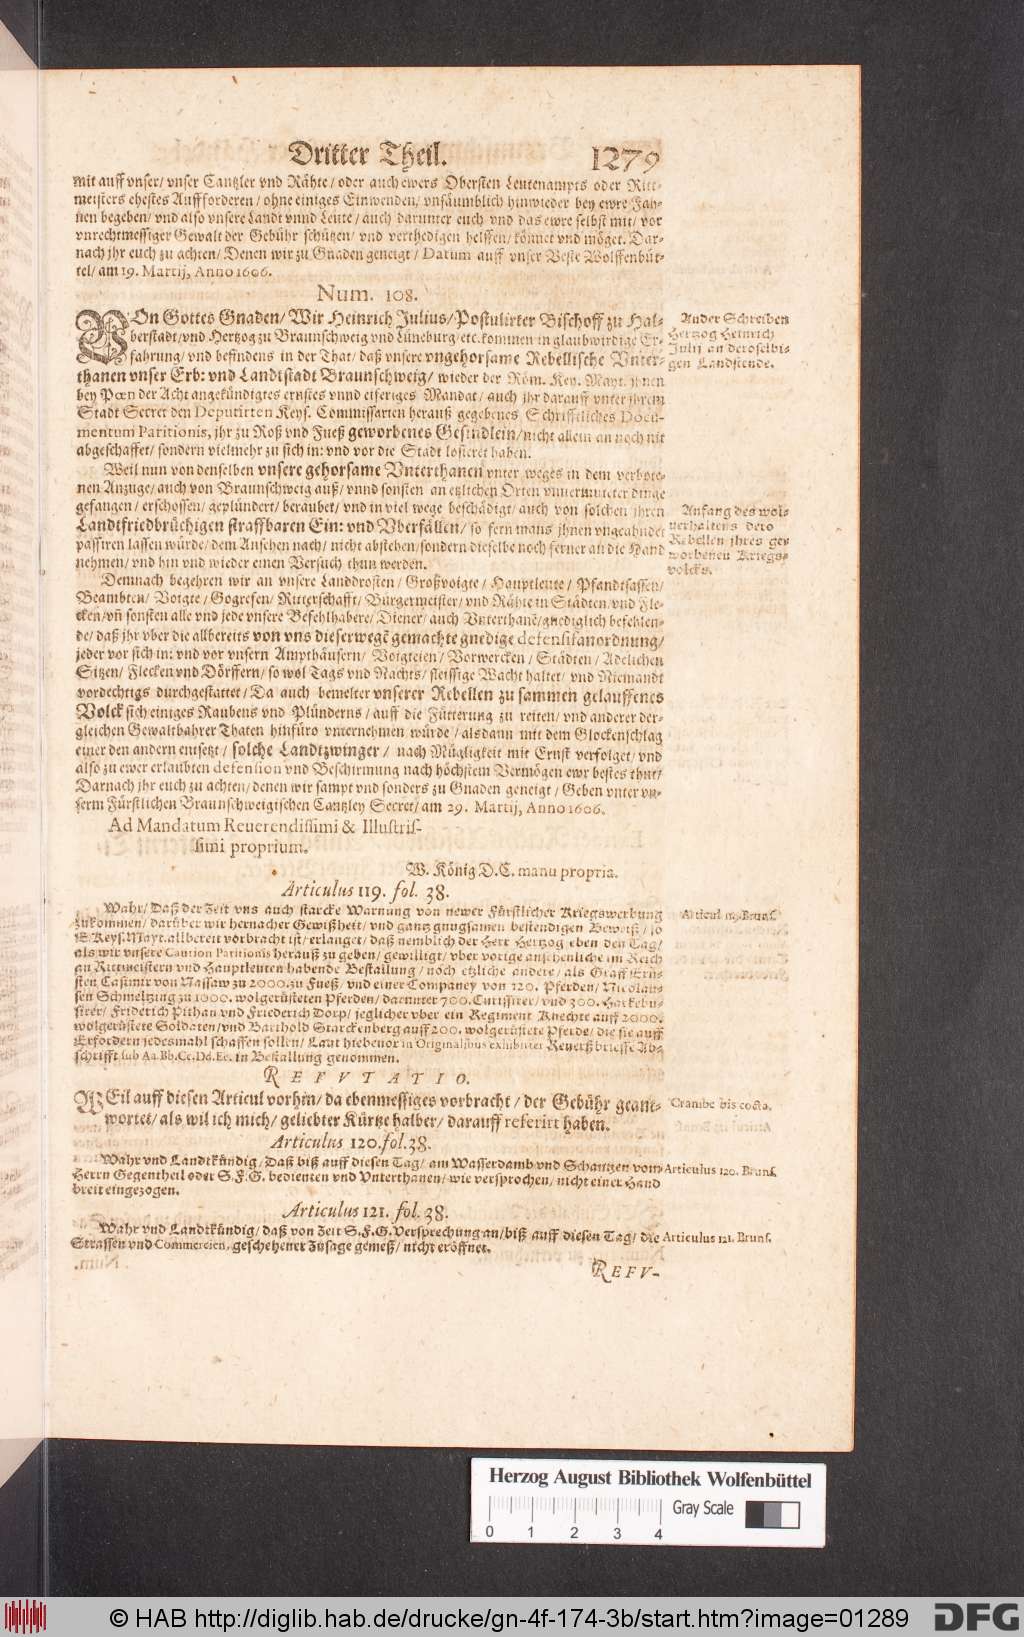 Dritter Theil. 1279
mit auff vnser/ vnser Cantzler vnd Rähte/ oder auch ewers Obersten Leutenampts oder Ritt-
meisters ehestes Auffforderen/ ohne einiges Einwenden/ vnsäumblich hinwieder bey ewre Fah-
nen begeben/ vnd also vnsere Landt vnnd Leute/ auch darunter euch vnd das ewre selbst mit/ vor
vnrechtmessiger Gewalt der Gebühr schützen/ vnd verthedigen helffen/ könnet vnd möget. Dar-
nach jhr euch zu achten/ Denen wir zu Gnaden geneigt/ Datum auff vnser Veste Wolffenbüt-
tel/ am 19. Martij, Anno 1606.
Num. 108.
VOn Gottes Gnaden/ Wir Heinrich Julius/ Postulirter Bischoff zu Hal-
berstadt/ vnd Hertzog zu Braunschweig vnd Lüneburg/ etc. kommen in glaubwirdige Er-
fahrung/ vnd befindens in der That/ daß vnsere vngehorsame Rebellische Vnter-
thanen vnser Erb: vnd Landtstadt Braunschweig/ wieder der Röm. Key. Mayt. jhnen
bey Pœn der Acht angekündigtes ernstes vnnd eiferiges Mandat/ auch jhr darauff vnter jhrem
Stadt Secret den Deputirten Keys. Commissarien herauß gegebenes Schrifftliches Docu-
mentum Paritionis, jhr zu Roß vnd Fueß geworbenes Gesindlein/ nicht allein an noch nit
abgeschaffet/ sondern vielmehr zu sich in: vnd vor die Stadt losieret haben.
Weil nun von denselben vnsere gehorsame Vnterthanen vnter weges in dem verbote-
nen Anzuge/ auch von Braunschweig auß/ vnnd sonsten an etzlichen Orten vnvermuteter dinge
gefangen/ erschossen/ geplündert/ beraubet/ vnd in viel wege beschädigt/ auch von solchen jhren
Landtfriedbrüchigen straffbaren Ein: vnd Vberfällen/ so fern mans jhnen vngeahndet
passiren lassen würde/ dem Ansehen nach/ nicht abstehen/ sondern dieselbe noch ferner an die Hand
nehmen/ vnd hin vnd wieder einen Versuch thun werden.
Demnach begehren wir an vnsere Landdrosten/ Großvoigte/ Hauptleute/ Pfandtsassen/
Beambten/ Voigte/ Gogrefen/ Ritterschafft/ Bürgermeister/ vnd Rähte in Städten vnd Fle-
cken/ vñ sonsten alle vnd jede vnsere Befehlhabere/ Diener/ auch Vnterthanē/ gnediglich befehlen-
de/ daß jhr vber die allbereits von vns dieserwegē gemachte gnedige defensifanordnung/
jeder vor sich in: vnd vor vnsern Ampthäusern/ Voigteien/ Vorwercken/ Städten/ Adelichen
Sitzen/ Flecken vnd Dörffern/ so wol Tags vnd Nachts/ fleissige Wacht haltet/ vnd Niemandt
vordechtigs durchgestattet/ Da auch bemelter vnserer Rebellen zu sammen gelauffenes
Volck sich einiges Raubens vnd Plünderns/ auff die Fütterung zu reiten/ vnd anderer der-
gleichen Gewaltbahrer Thaten hinfüro vnternehmen würde/ alsdann mit dem Glockenschlag
einer den andern entsetzt/ solche Landtzwinger/ nach Mügligkeit mit Ernst verfolget/ vnd
also zu ewer erlaubten defension vnd Beschirmung nach höchstem Vermögen ewr bestes thut/
Darnach jhr euch zu achten/ denen wir sampt vnd sonders zu Gnaden geneigt/ Geben vnter vn-
serm Fürstlichen Braunschweigischen Cantzley Secret/ am 29. Martij, Anno 1606.
Ad Mandatum Reuerendissimi & Illustris-
simi proprium.
W. König D.C. manu propria.
Ander Schreiben
Hertzog Heinrich
Julij an deroselbi-
gen Landstende.
Anfang des wol-
verhaltens dero
Rebellen jhres ge-
worbenen Kriegs-
volcks.
Articulus 119. fol. 38.
Wahr/ Daß der Zeit vns auch starcke Warnung von newer Fürstlicher Kriegswerbung
zukommen/ darüber wir hernacher Gewißheit/ vnd gantz gnugsamen bestendigen Beweiß/ so
E. Keys. Mayt. allbereit vorbracht ist/ erlanget/ daß nemblich der Herr Hertzog eben den Tag/
als wir vnsere Caution Paritionis herauß zu geben/ gewilligt/ vber vorige ansehenliche im Reich
an Rittmeistern vnd Hauptleuten habende Bestallung/ noch etzliche andere/ als Graff Ern-
sten Casimir von Nassaw zu 2000. zu Fueß/ vnd einer Companey von 120. Pferden/ Nicolau-
sen Schmeltzing zu 1000. wolgerüsteten Pferden/ darunter 700. Curissirer/ vnd 300. Harkebu-
sirer/ Friderich Pithan vnd Friederich Dorp/ jeglicher vber ein Regiment Knechte auff 2000.
wolgerüstete Soldaten/ vnd Barthold Starckenberg auff 200. wolgerüstete Pferde/ die sie auff
Erfordern jedesmahl schaffen sollen/ Laut hiebevor in Originalibus exhibirter Reverßbrieffe Ab-
schrifft sub Aa. Bb. Cc. Dd. Ee. in Bestallung genommen.
Articul 119. Bruns.
REFVTATIO.
WEil auff diesen Articul vorhin/ da ebenmessiges vorbracht/ der Gebühr geant-
wortet/ als wil ich mich/ geliebter Kürtze halber/ darauff referirt haben.
Crambe bis cocta.
Articulus 120. fol. 38.
Wahr vnd Landtkündig/ Daß biß auff diesen Tag/ am Wasserdamb vnd Schantzen vom
Herrn Gegentheil oder S.F.G. bedienten vnd Vnterthanen/ wie versprochen/ nicht einer Hand
breit eingezogen.
Articulus 120. Bruns.
Articulus 121. fol. 38.
Wahr vnd Landtkündig/ daß von Zeit S.F.G. Versprechung an/ biß auff diesen Tag/ die
Strassen vnd Commercien, geschehener Zusage gemeß/ nicht eröffnet.
Articulus 121. Bruns.
REFV-
Herzog August Bibliothek Wolfenbüttel
Gray Scale
0 1 2 3 4
© HAB http://diglib.hab.de/drucke/gn-4f-174-3b/start.htm?image=01289
DFG